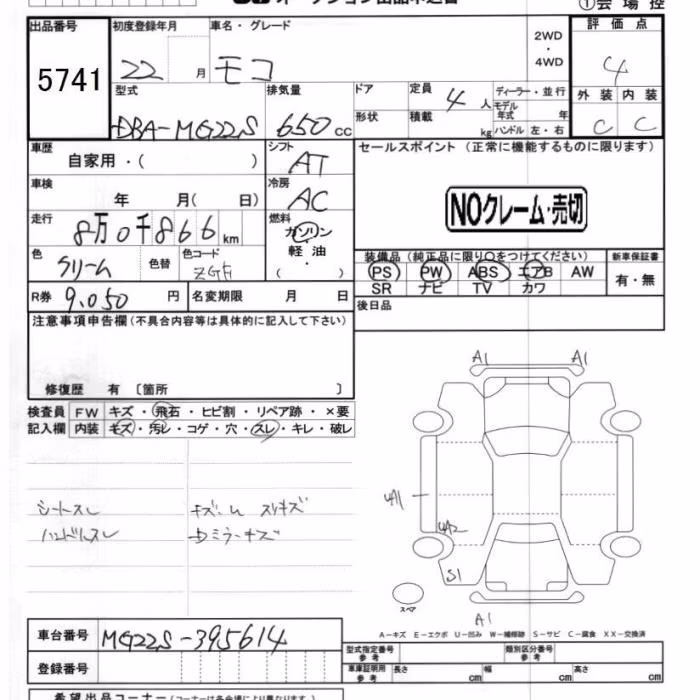 ①会 場 控
出品番号 初度登録年月 車名・グレード 評 価 点
5741 22 月 モコ 2WD ・ 4WD 4
型式 排気量 ドア 定員 ディーラー・並行 外 装 内 装
DBA-MG22S 650 cc 4 人 モデル年式 年 C C
形状 積載 kg ハンドル 左・右
車歴 シフト セールスポイント (正常に機能するものに限ります)
自家用・( ) AT
車検 冷房
年 月( 日) AC NOクレーム・売切
走行 燃料
8万0千866 km ガソリン
・
色 色替 色コード 軽 油 装備品 (純正品に限り○をつけてください) 新車保証書
クリーム ・ ( ) PS PW ABS エアB AW 有・無
SR ナビ TV カワ
R券 9,050 円 名変期限 月 日 後日品
注意事項申告欄(不具合内容等は具体的に記入して下さい)
修復歴 有 〔箇所 〕
検査員 FW キズ・飛石・ヒビ割・リペア跡・×要
記入欄 内装 キズ・汚レ・コゲ・穴・スレ・キレ・破レ
A1 A1
シートスレ
ハンドルスレ
UA2
S1
スペア
A1
A-キズ E-エクボ U-凹み W-補修跡 S-サビ C-腐食 XX-交換済
車台番号 MG22S-395614
型式指定番号 参 考 類別区分番号 参 考
登録番号 車庫証明用 参 考 長さ cm 幅 cm 高さ cm
希望出品コーナー